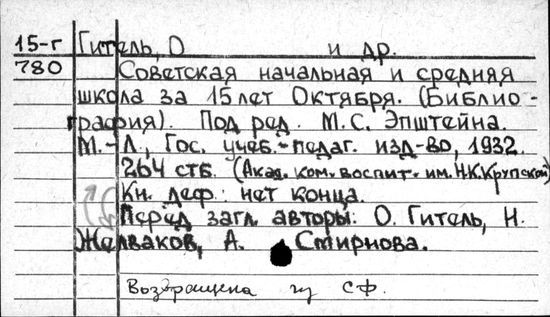 15-г Гитель, О и др.
780 Советская начальная и средняя
школа за 15 лет Октября. (Библио-
графия). Под ред. М.С. Эпштейна.
М.-Л., Гос. учеб.-педаг. изд-во, 1932.
264 стб. (Акад. ком. воспит. им. Н.К. Крупской)
Кн. деф: нет конца.
Перед загл. авторы: О. Гитель, Н.
Желваков, А. Смирнова.
Возвращена из СФ.